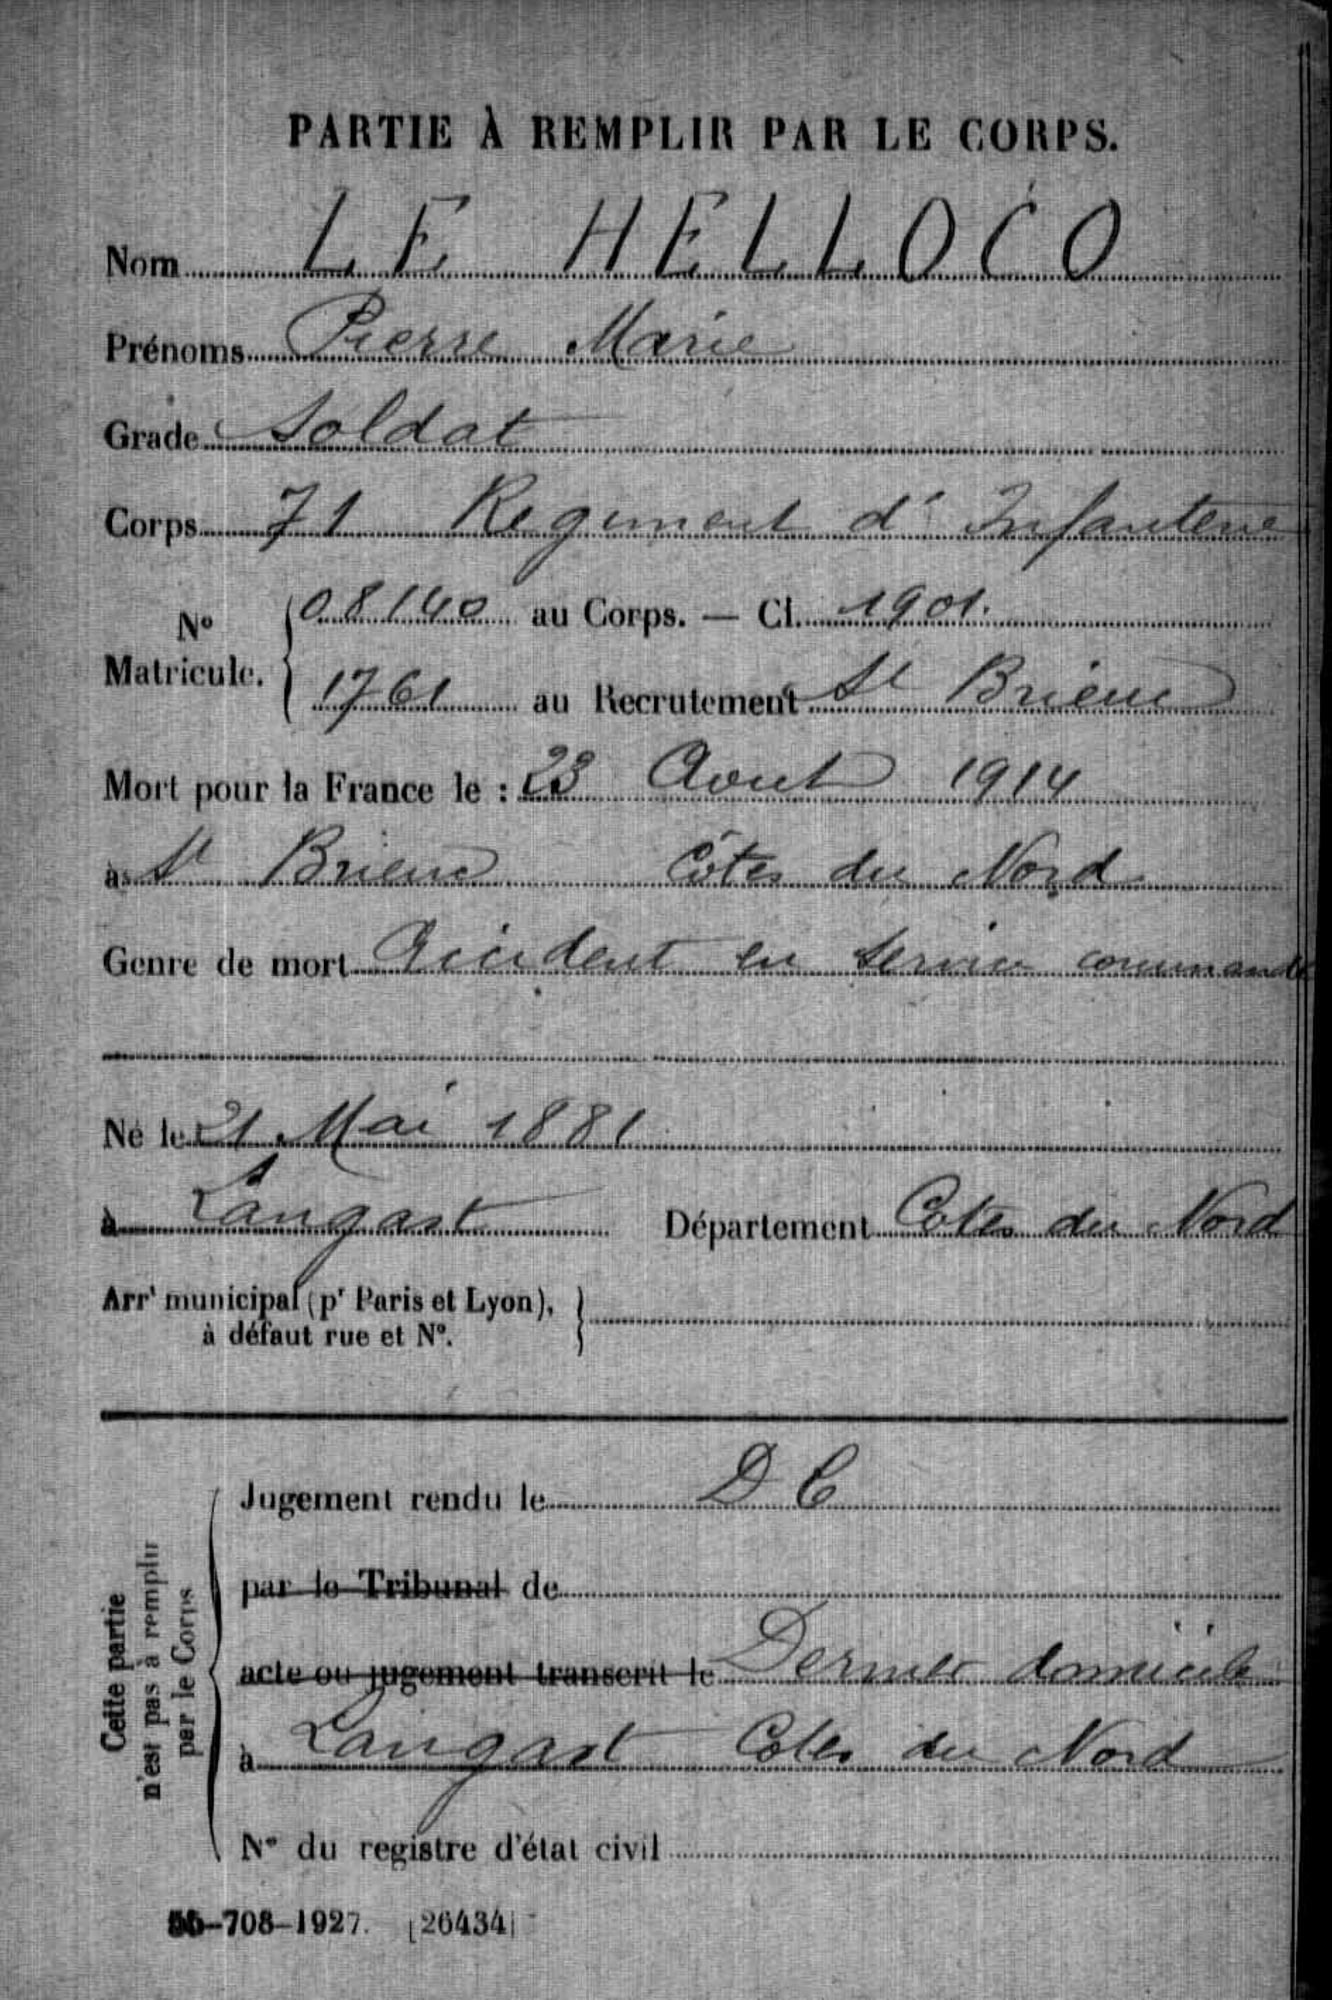 PARTIE À REMPLIR PAR LE CORPS.
Nom LE HELLOCO
Prénoms Pierre Marie
Grade Soldat
Corps 71 Regiment d' Infanterie
No Matricule. 08140 au Corps. — Cl. 1901.
1761 au Recrutement St Brieuc
Mort pour la France le : 23 Aout 1914
à St Brieuc Côtes du Nord
Genre de mort Accident en service commandé
Né le 21 Mai 1881
à Langast Département Cotes du Nord
Arrt municipal (pr Paris et Lyon),
à défaut rue et No.
Cette partie
n'est pas à remplir
par le Corps
Jugement rendu le D C
par le Tribunal de
acte ou jugement transcrit le Dernier domicile
à Langast Cotes du Nord
No du registre d'état civil
-708-1927. [26434]